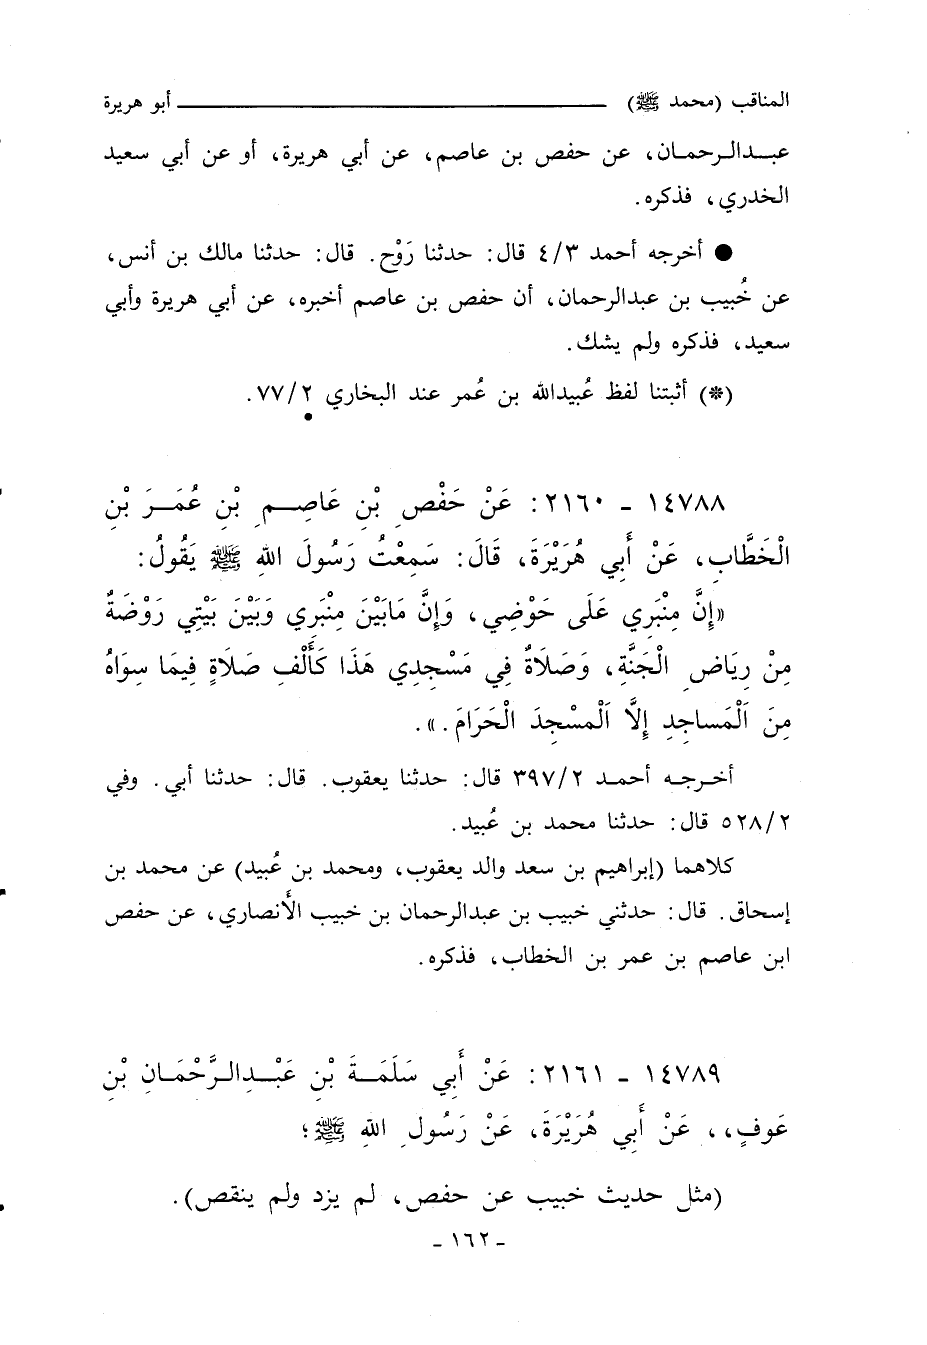 المناقب (محمد ﷺ) ــــــــــــــــــــ أبو هريرة
عبدالرحمان، عن حفص بن عاصم، عن أبي هريرة، أو عن أبي سعيد
الخدري، فذكره.
● أخرجه أحمد ٤/٣ قال: حدثنا رَوْح. قال: حدثنا مالك بن أنس،
عن خُبيب بن عبدالرحمان، أن حفص بن عاصم أخبره، عن أبي هريرة وأبي
سعيد، فذكره ولم يشك.
(*) أثبتنا لفظ عُبيدالله بن عُمر عند البخاري ٧٧/٢.
١٤٧٨٨ - ٢١٦٠: عَنْ حَفْصِ بْنِ عَاصِمِ بْنِ عُمَرَ بْنِ
الْخَطَّابِ، عَنْ أَبِي هُرَيْرَةَ، قَالَ: سَمِعْتُ رَسُولَ اللهِ ﷺ يَقُولُ:
«إِنَّ مِنْبَرِي عَلَى حَوْضِي، وَإِنَّ مَابَيْنَ مِنْبَرِي وَبَيْنَ بَيْتِي رَوْضَةٌ
مِنْ رِيَاضِ الْجَنَّةِ، وَصَلَاةٌ فِي مَسْجِدِي هَذَا كَأَلْفِ صَلَاةٍ فِيمَا سِوَاهُ
مِنَ اَلْمَساجِدِ إِلَّا اَلْمسْجِدَ الْحَرَامَ.».
أخرجه أحمد ٣٩٧/٢ قال: حدثنا يعقوب. قال: حدثنا أبي. وفي
٥٢٨/٢ قال: حدثنا محمد بن عُبيد.
كلاهما (إبراهيم بن سعد والد يعقوب، ومحمد بن عُبيد) عن محمد بن
إسحاق. قال: حدثني خبيب بن عبدالرحمان بن خبيب الأَنصاري، عن حفص
ابن عاصم بن عمر بن الخطاب، فذكره.
١٤٧٨٩ - ٢١٦١: عَنْ أَبِي سَلَمَةَ بْنِ عَبْدِالرَّحْمَانِ بْنِ
عَوفٍ،، عَنْ أَبِي هُرَيْرَةَ، عَنْ رَسُولِ اللهِ ﷺ؛
(مثل حديث خبيب عن حفص، لم يزد ولم ينقص).
- ١٦٢ -